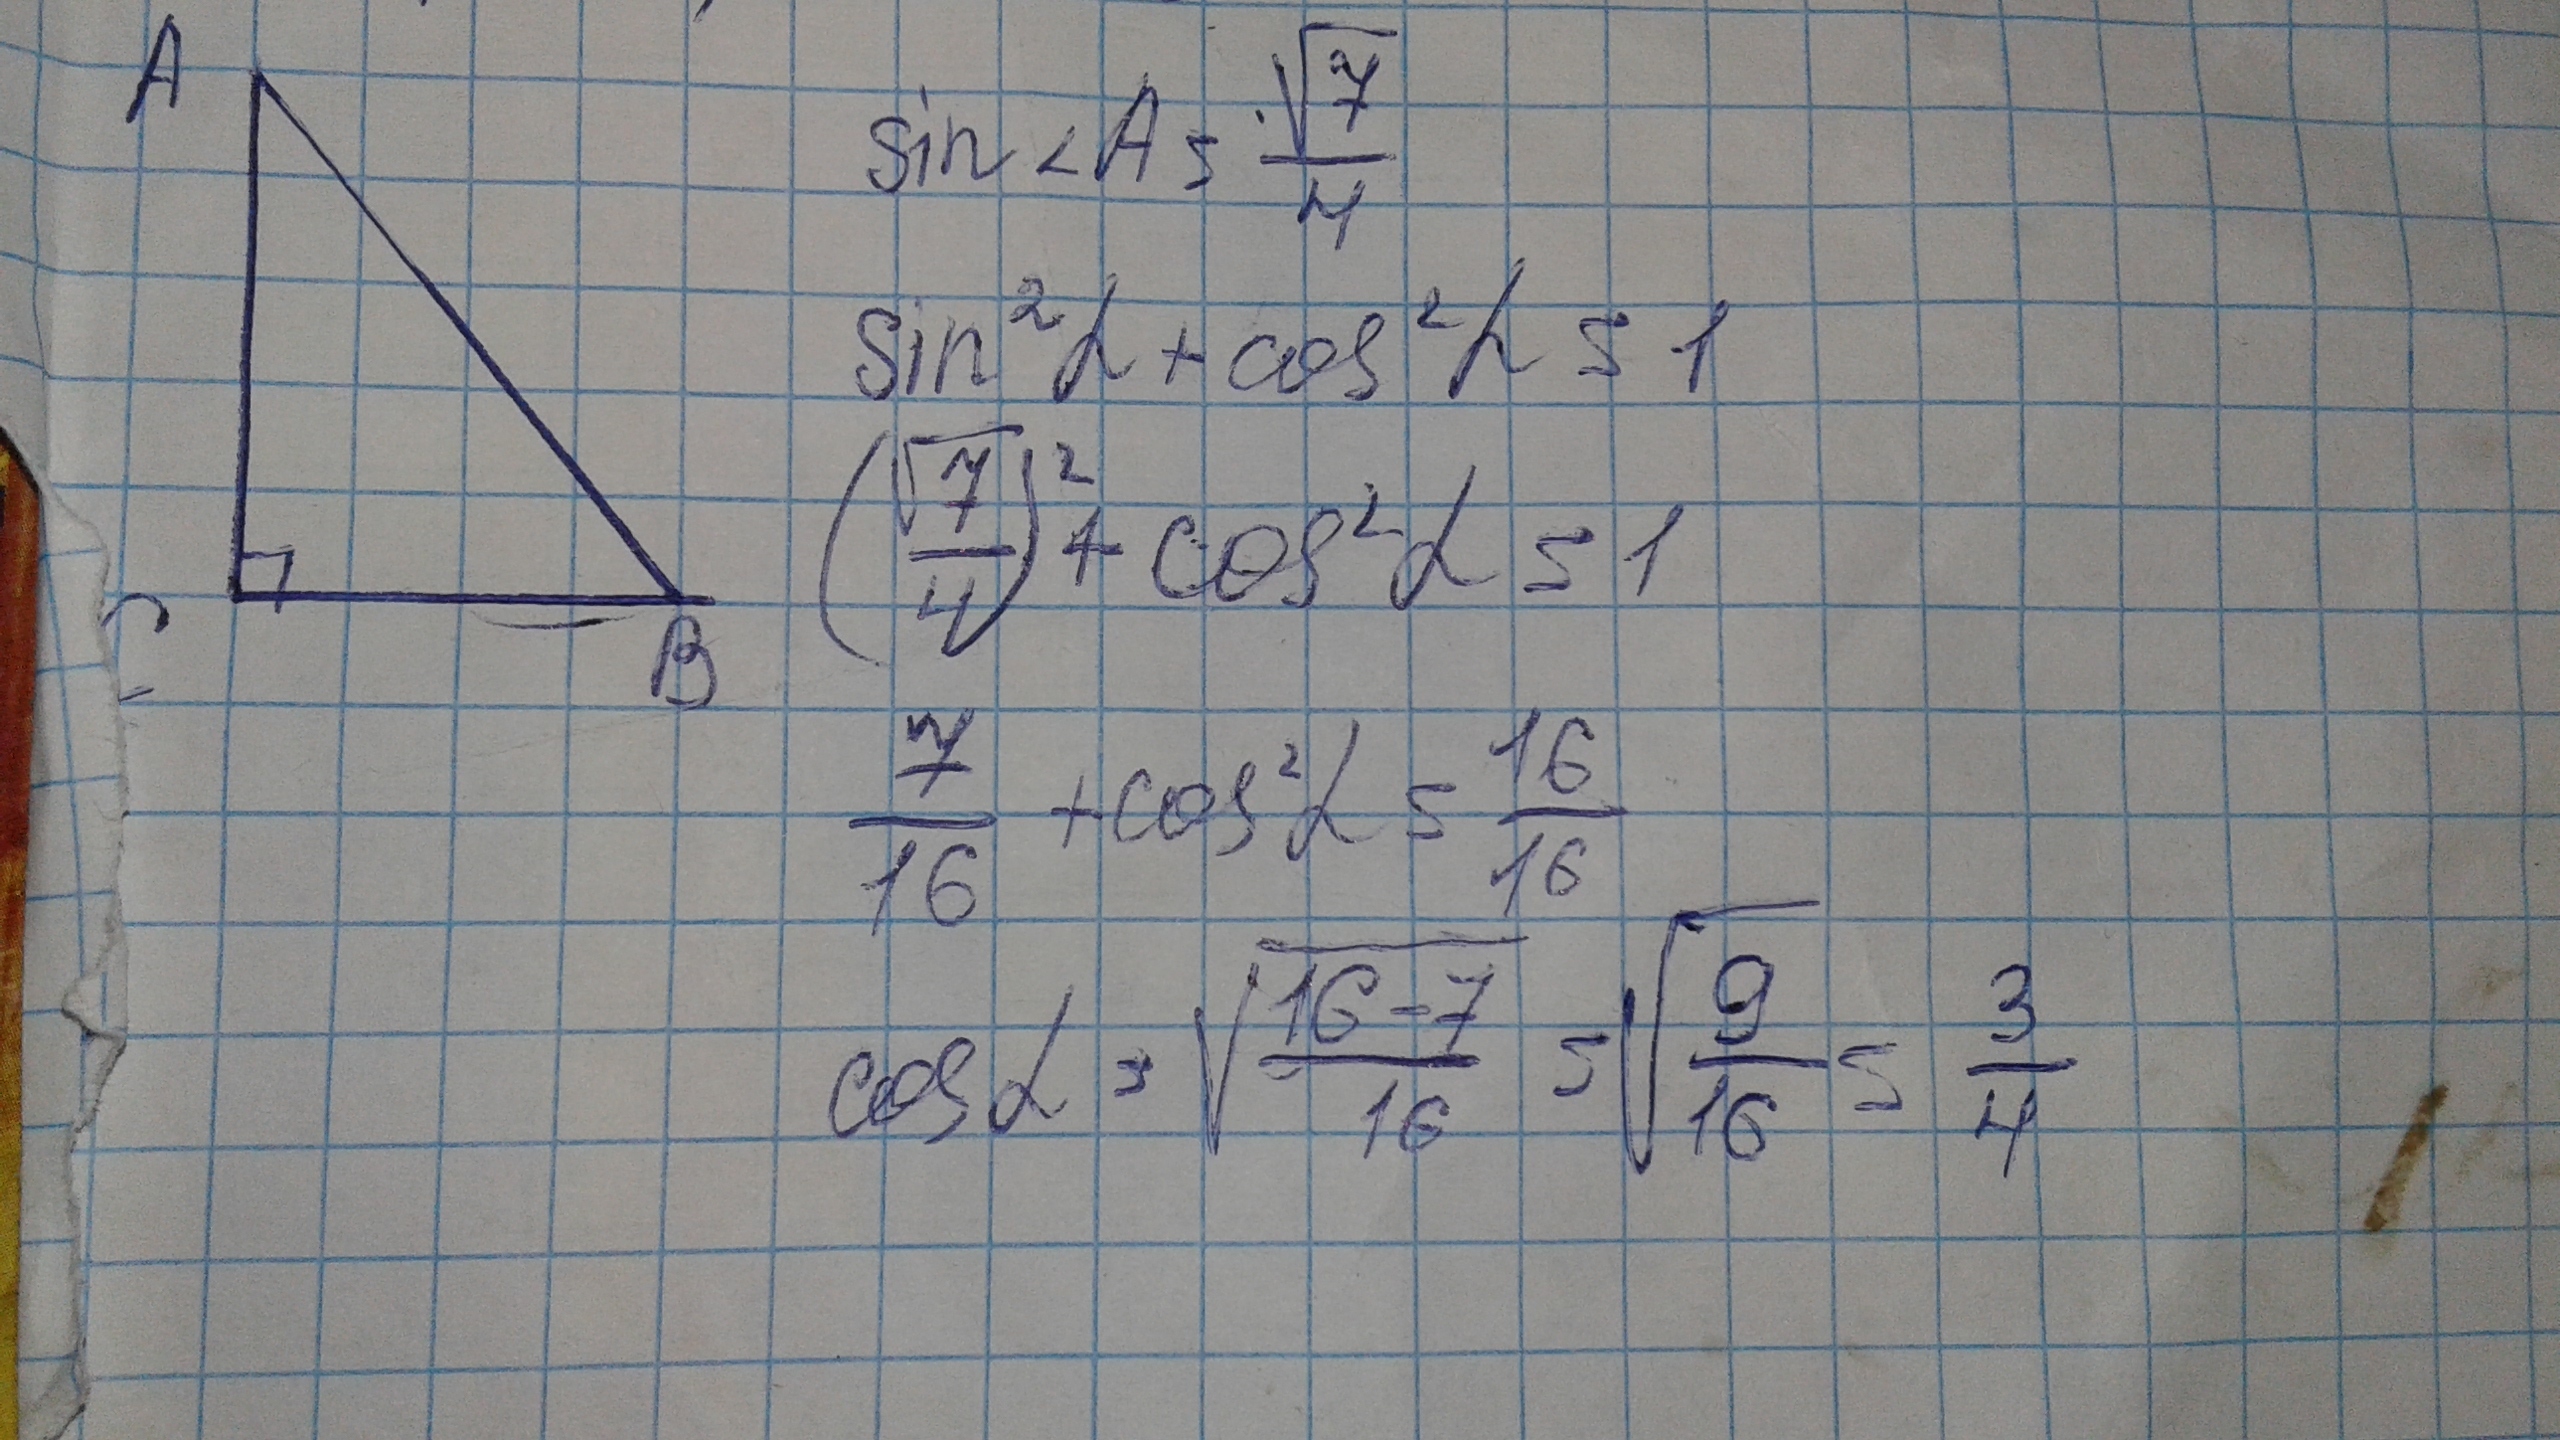 A
C
B
sin ∠A = √7/4
sin²α + cos²α = 1
(√7/4)² + cos²α = 1
7/16 + cos²α = 16/16
cos α = √(16-7/16) = √(9/16) = 3/4